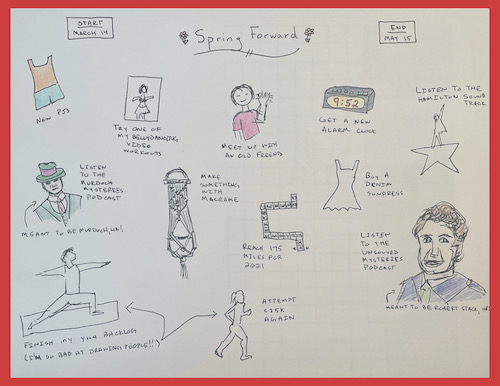 START
MARCH 14
Spring Forward
END
MAY 15
NEW PJS
TRY ONE OF
MY BELLYDANCING
VIDEO
WORKOUTS
MEET UP WITH
AN OLD FRIEND
9:52
GET A NEW
ALARM CLOCK
LISTEN TO THE
HAMILTON SOUND
TRACK
LISTEN
TO THE
MURDOCH
MYSTERIES
PODCAST
MEANT TO BE MURDOCH, HA!
MAKE
SOMETHING
WITH
MACRAME
REACH 175
MILES FOR
2021
BUY A
DENIM
SUNDRESS
LISTEN
TO THE
UNSOLVED
MYSTERIES
PODCAST
MEANT TO BE ROBERT STACK,
FINISH MY YOGA BACKLOG
(I'M SO BAD AT DRAWING PEOPLE!!)
ATTEMPT
C25K
AGAIN